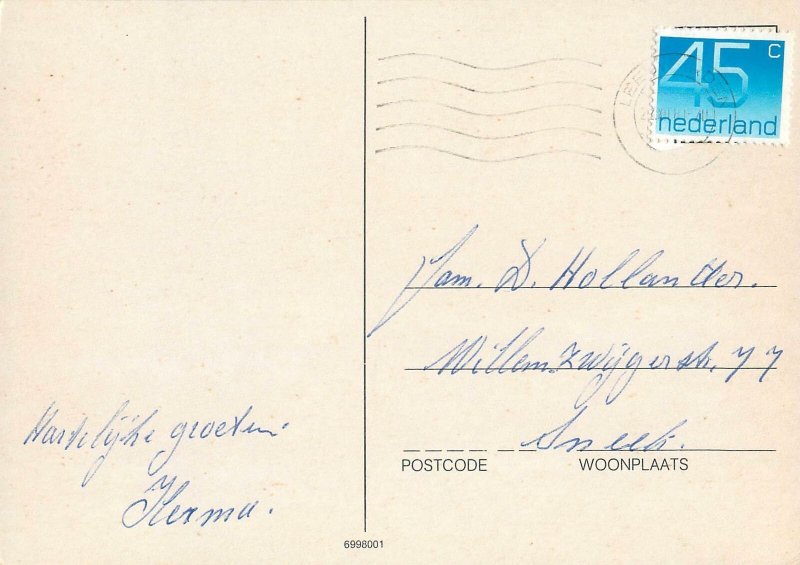 45 c
nederland
Fam. D. Hollander.
Willem Zwijgerstr. 77
Sneek.
POSTCODE WOONPLAATS
Hartelijke groeten
Herma.
6998001